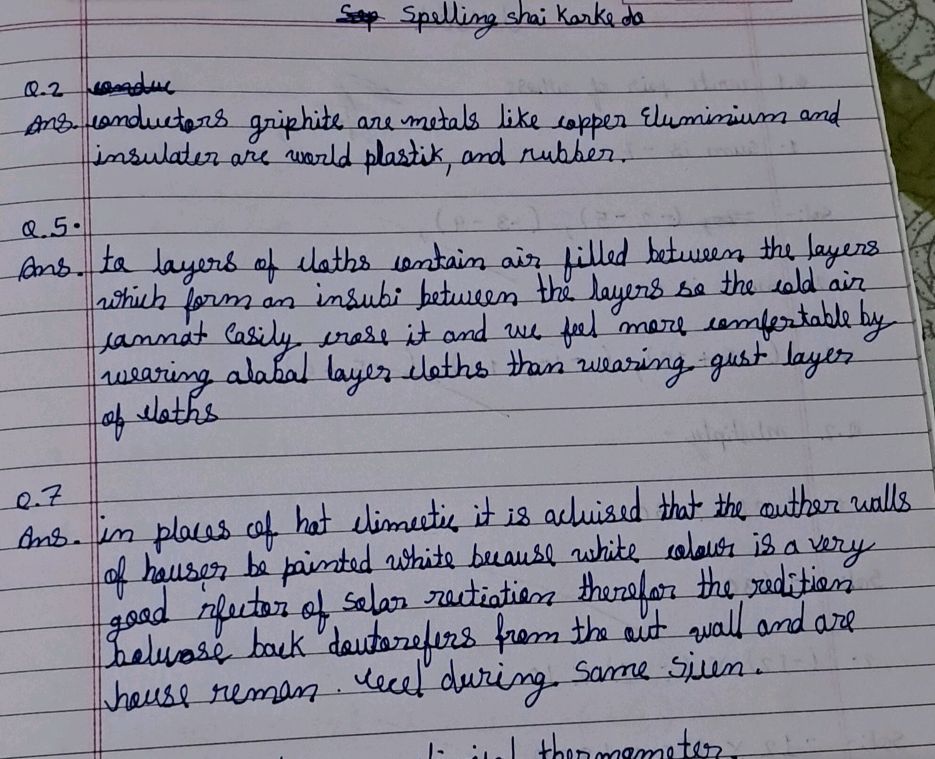 Spelling shai Karke do
Q.2
Ans. conductors griphite are metals like copper Eluminium and
insulater are world plastik, and rubber.
Q.5.
Ans. to layers of cloths contain air filled between the layers
which form an insubi between the layers so the cold air
cannot Easily crose it and we feel more comfertable by
wearing alabal layer cloths than wearing gust layer
of cloths
Q.7
Ans. in places of hot climectic it is acluised that the outher walls
of houser be painted white because white colour is a very
good rfector of solar ractiation therefor the redition
back from the out wall and are
house reman. during same
thermometer